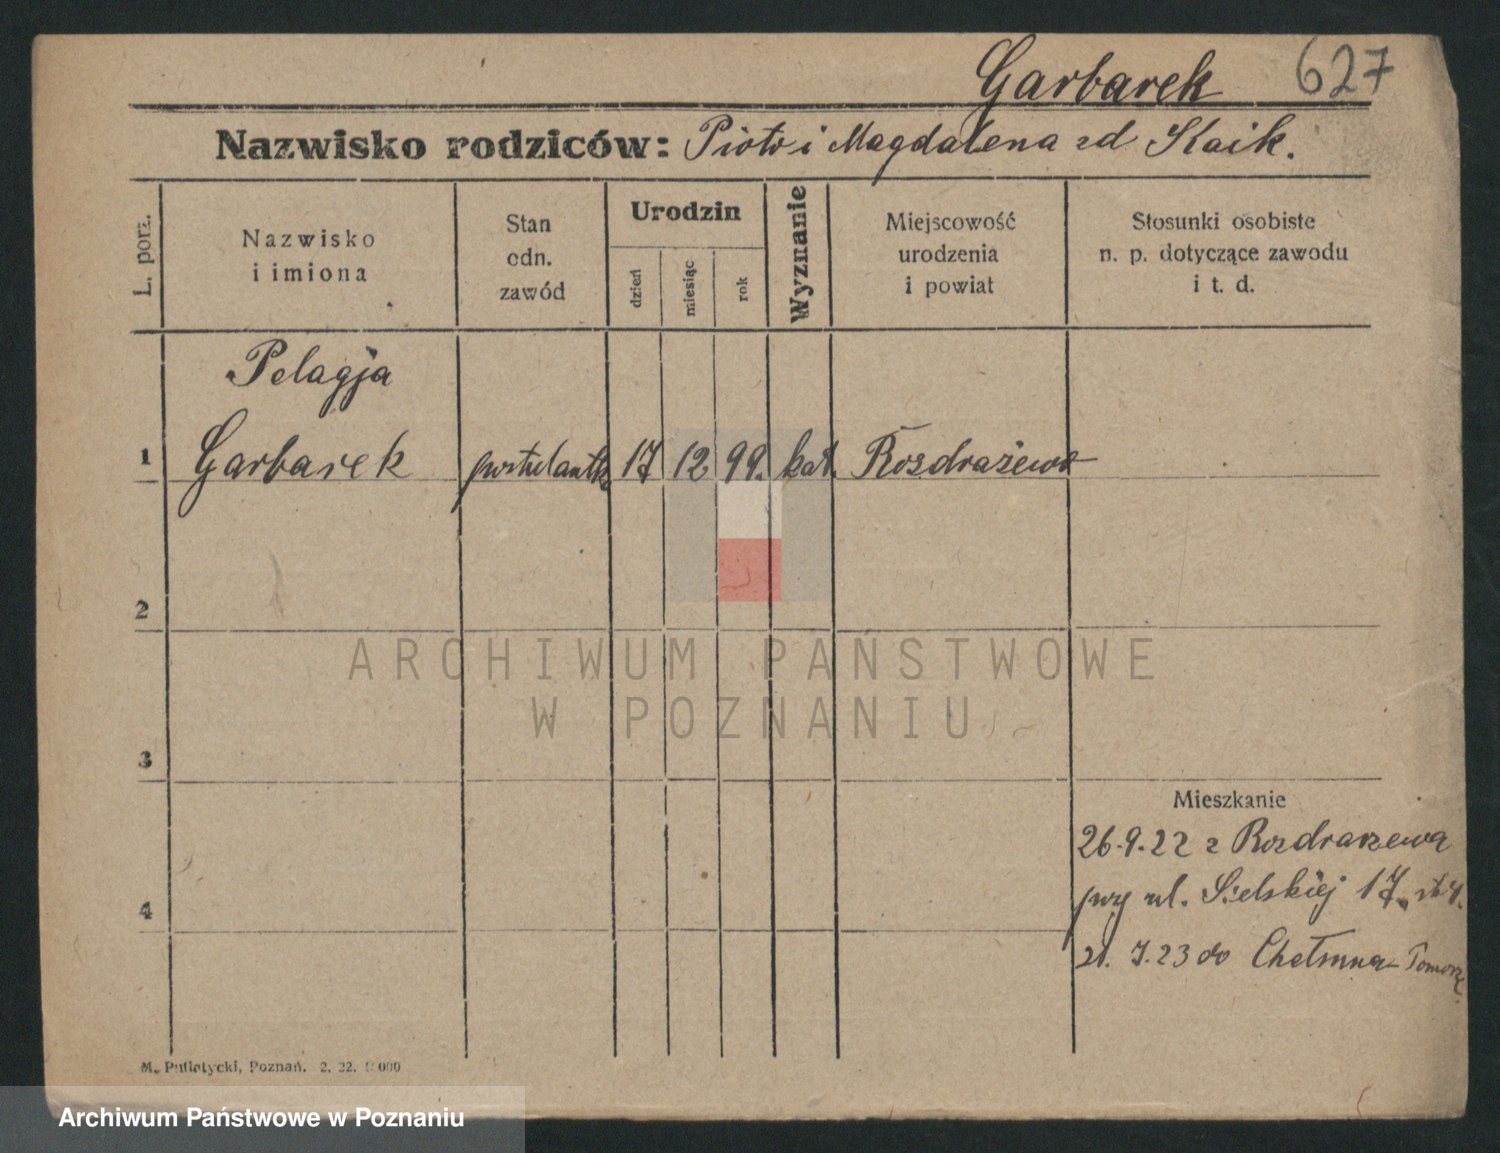 Garbarek 627
Nazwisko rodziców: Piotr i Magdalena zd Skaik.
L. porz.
Nazwisko
i imiona
Stan
odn.
zawód
Urodzin
dzień
miesiąc
rok
Wyznanie
Miejscowość
urodzenia
i powiat
Stosunki osobiste
n. p. dotyczące zawodu
i t. d.
Pelagja
1 Garbarek postulantka 17 12 99. kat. Rozdrażewo
2
ARCHIWUM PAŃSTWOWE
W POZNANIU
3
Mieszkanie
26.9.22 z Rozdrazewa
przy ul. Sielskiej 17.
4
21. 7. 23 do Chełmna-Pomorze
M. Putiatycki, Poznań. 2. 22.
Archiwum Państwowe w Poznaniu